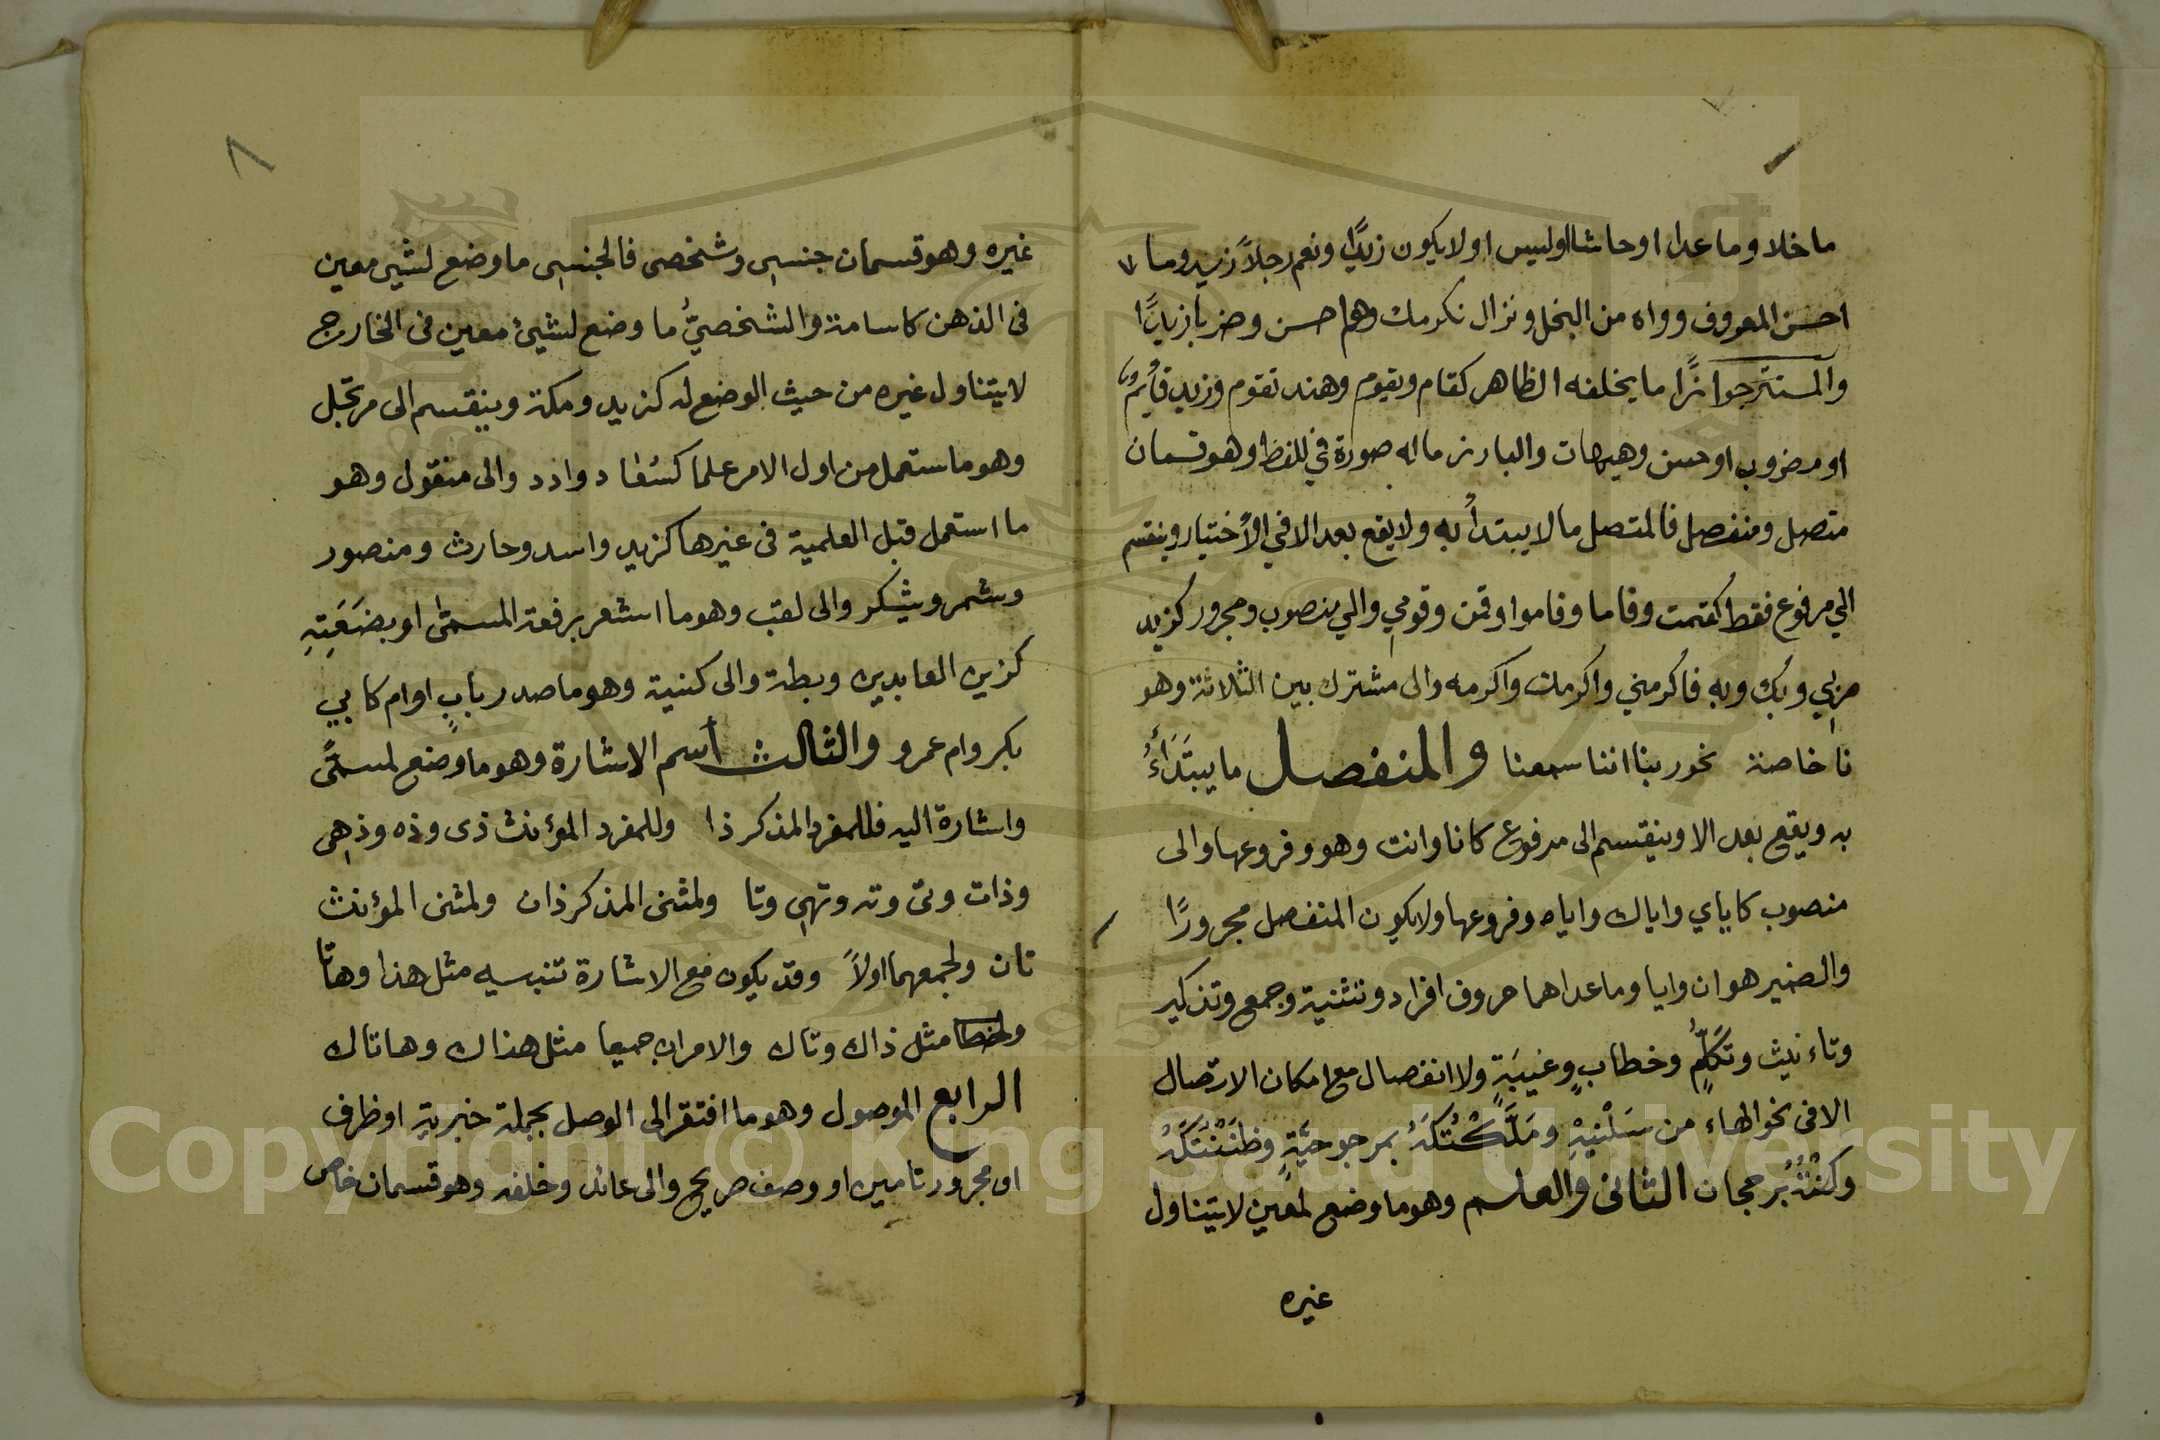 ما خلا وما عدا او حاشا اوليس او لا يكون زيدًا ونعم رجلاً زيد وما
احسن المعروف وواه من البخل ونزال نكرمك وهم احسن وضربا زيدًا
والمستتر جوازًا ما يخلفه الظاهر كقام ويقوم وهند تقوم وزيد قائم
او مضروب او حسن وهيهات والبارز ماله صورة في اللفظ وهو قسمان
متصل ومنفصل فالمتصل ما لا يبتدأ به ولا يقع بعد الا في الأختيار وينقسم
الي مرفوع فقط كقمت وقاما وقاموا وقمن وقومي والي منصوب ومجرور كزيد
مربي وبك وبه فاكرمني واكرمك واكرمه والى مشترك بين الثلاثة وهو
نا خاصة نحو ربنا اننا سمعنا والمنفصل ما يبتدأ
به ويقع بعد الا وينقسم الى مرفوع كانا وانت وهو وفروعها والى
منصوب كاياي واياك واياه وفروعها ولا يكون المنفصل مجرورًا
والضمير هو ان وايا وما عداهما حروف افراد وتثنية وجمع وتذكير
وتاءنيث وتكلمٍ وخطابٍ وغيبةٍ ولا انفصال مع امكان الاتصال
الا فى نحو الهاء من سَلْنِيْهِ ومَلَّكْتُكَهُ بمرجوحيّةٍ وظَنَنْتُكَهُ
وكُنْتُهُ برجحان الثانى والعلم وهو ما وضع لمعين لا يتناول
غيره
٨
غيره وهو قسمان جنسى وشخصى فالجنسى ما وضع لشىء معين
فى الذهن كاسامة والشخصيُّ ما وضع لشيئ معين فى الخارج
لا يتناول غيره من حيث الوضع له كزيد ومكة وينقسم الى مرتجل
وهو ما ستعمل من اول الامر علما كسُعاد وادد والى منقول وهو
ما استعمل قبل العلمية فى غيرها كزيد واسد وحارث ومنصور
وشمر ويشكر والى لقب وهو ما اشعر برفعة المسمّى او بضَعَتِهِ
كزين العابدين وبطة والى كنية وهو ما صدر بابٍ او ام كابي
بكر وام عمرو والثالث أسم الاشارة وهو ما وضع لمسمًّى
واشارة اليه فللمفرد المذكر ذا وللمفرد المؤنث ذى وذه وذهى
وذات وتى وته وتهى وتا ولمثنى المذكر ذان ولمثنى المؤنث
تان ولجمعهما اولاً وقد يكون مع الاشارة تنبيه مثل هذا وهاتا
ولخطا مثل ذاك وتاك والامران جميعا مثل هذاك وهاتاك
الرابع الموصول وهو ما افتقر الى الوصل بجملة خبرية او ظرف
او مجرور تامين او وصف صريح والى عائد وخلفه وهو قسمان خاص
Copyright © King Saud University